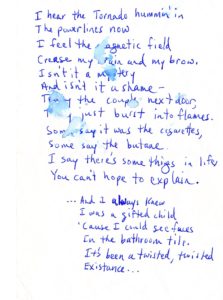 I hear the Tornado hummin' in
The powerlines now
I feel the magnetic field
Crease my brain and my brow.
Isn't it a mystery
And isn't it a shame -
the couple next door,
They just burst into flames.
Some say it was the cigarettes,
Some say the butane.
I say there's some things in life
You can't hope to explain.
...And I always knew
I was a gifted child
'Cause I could see faces
In the bathroom tile.
It's been a twisted, twisted
Existance...